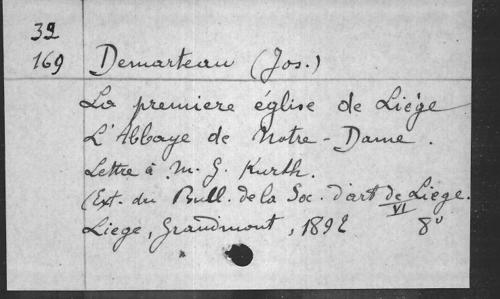 32
169 Demarteau (Jos.)
La premiere église de Liége
L'Abbaye de Notre-Dame.
Lettre à M. G. Kurth.
(Ext. du Bull. de la Soc. d'art de Liége.
VI
Liege, Grandmont, 1892 8°